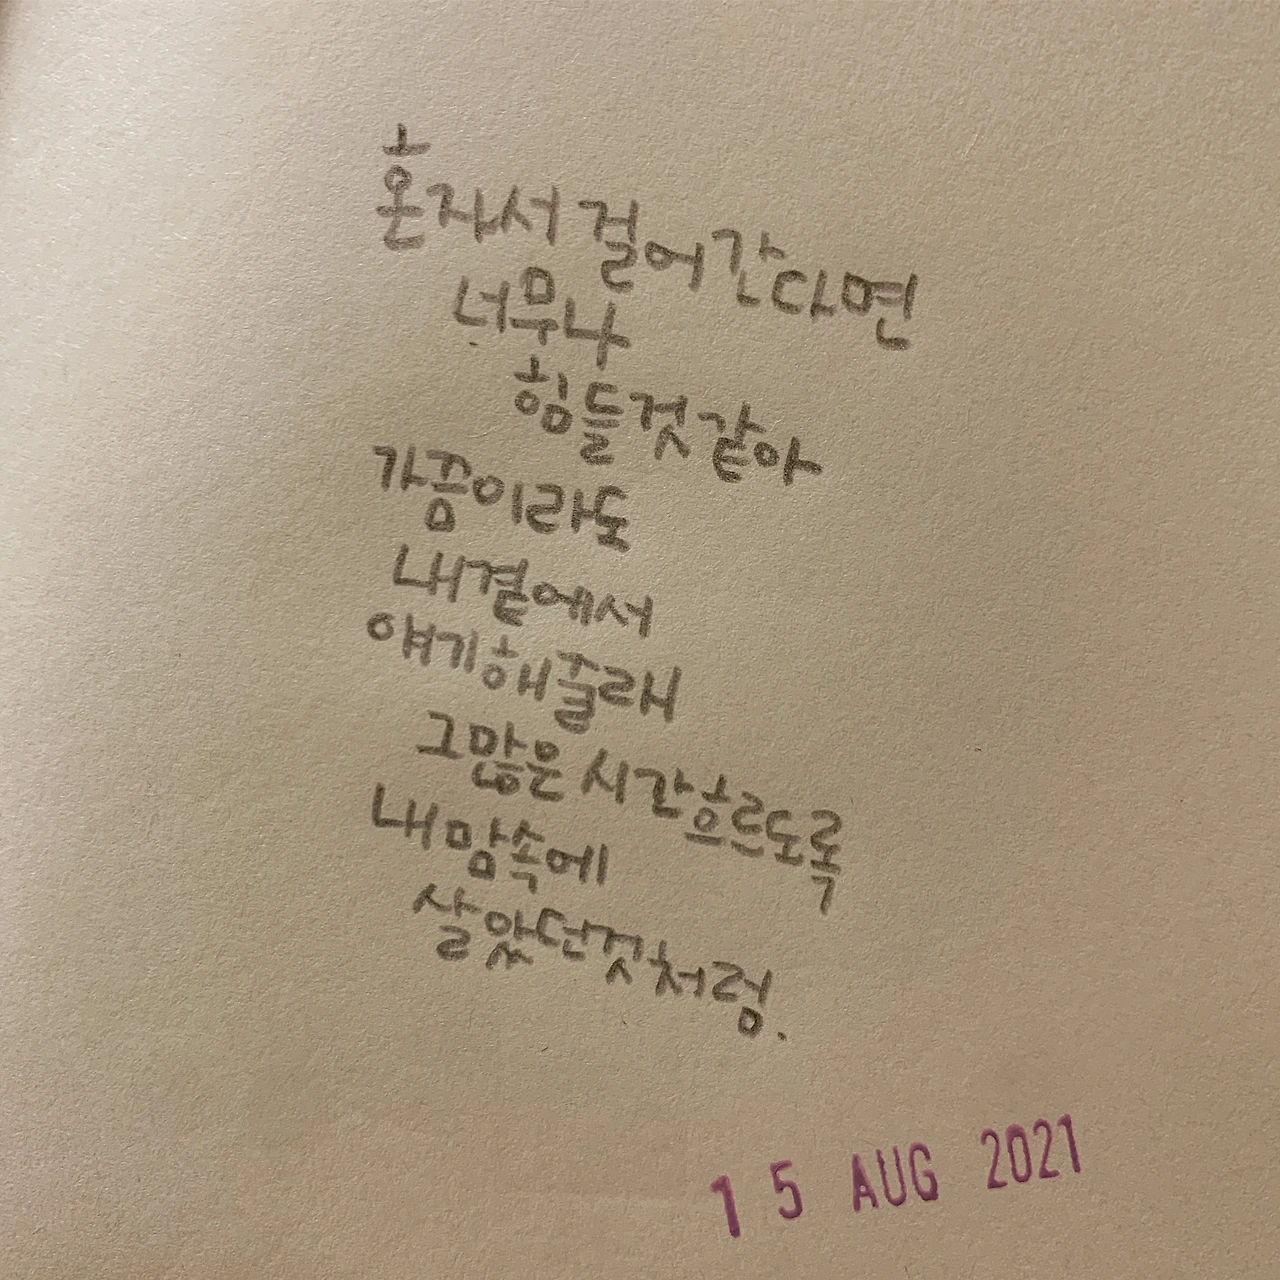 혼자서 걸어간다면
너무나
힘들것 같아
가끔이라도
내곁에서
얘기해줄래
그많은 시간흐르도록
내맘속에
살았던것처럼.
15 AUG 2021